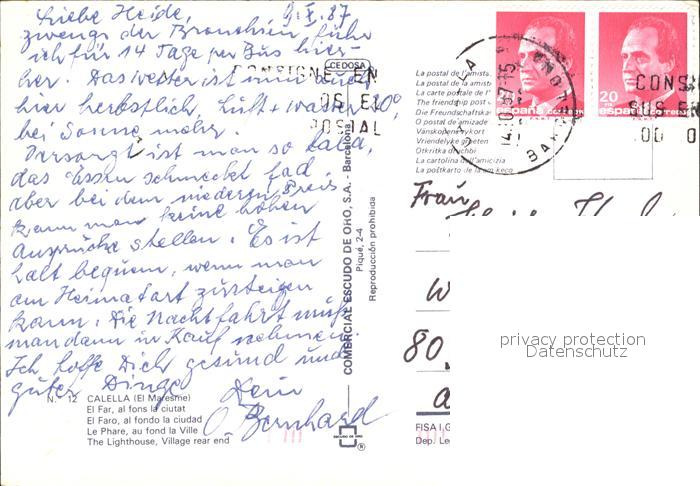 9.X.87
Liebe Heide,
zwecks der Bronchien fuhr
ich für 14 Tage per Bus hier-
her. Das Wetter ist nun auch
hier herbstlich, Luft + Wasser 20°
bei Sonne mehr.
Versorgt ist man so lala,
das Essen schmeckt fad.
aber bei dem niedern Preis
kann man keine hohen
Ansprüche stellen. Es ist
halt bequem, wenn man
am Heimatort zusteigen
kann. Die Nachtfahrt muß
man dann in Kauf nehmen.
Ich hoffe Dich gesund und
guter Dinge
Dein
O. Bernhard
N.° 12 CALELLA (El Maresme)
El Far, al fons la ciutat
El Faro, al fondo la ciudad
Le Phare, au fond la Ville
The Lighthouse, Village rear end
CEDOSA
CONSIGNE EN
POSTAL
COMERCIAL ESCUDO DE ORO, S.A. - Barcelona
Piqué, 2-4
Reproducción prohibida
ESCUDO DE ORO
®
La postal de l'amista
La postal de la amist
La carte postale de l'
The friendship post
Die Freundschafts
O postal de amizade
Vänskapens vykort
Vriendelijke groeten
Otkritka druzhbi
La cartolina dell'amicizia
La poštkarto de la am
20
españa
españa
CALELLA
BARCELONA
14.10.87
CONS
Frau
W
80
privacy protection
Datenschutz
FISA I.G
Dep. Le